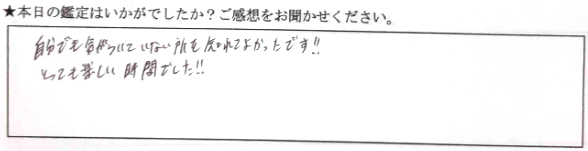 ★本日の鑑定はいかがでしたか？ご感想をお聞かせください。
自分でも気がついていない所も知れてよかったです!!
とっても楽しい時間でした!!